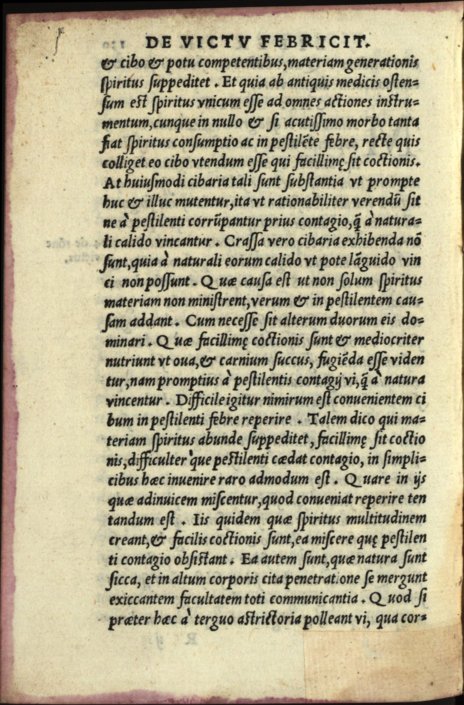 DE VICTV FEBRICIT.
& cibo & potu competentibus, materiam generationis
spiritus suppeditet. Et quia ab antiquis medicis osten=
sum est spiritus vnicum esse ad omnes actiones instru=
mentum, cunque in nullo & si acutissimo morbo tanta
fiat spiritus consumptio ac in pestilẽte febre, recte quis
colliget eo cibo vtendum esse qui facillimę sit coctionis.
At huiusmodi cibaria tali sunt substantia vt prompte
huc & illuc mutentur, ita vt rationabiliter verendũ sit
ne à pestilenti corrũpantur prius contagio, q̃ à natura=
li calido vincantur. Crassa vero cibaria exhibenda nõ
sunt, quia à naturali eorum calido vt pote lãguido vin
ci non possunt. Quæ causa est ut non solum spiritus
materiam non ministrent, verum & in pestilentem cau=
sam addant. Cum necesse sit alterum duorum eis do=
minari. Quæ facillimę coctionis sunt & mediocriter
nutriunt vt oua, & carnium succus, fugiẽda esse viden
tur, nam promptius à pestilentis contagij vi, q̃ à natura
vincentur. Difficile igitur nimirum est conuenientem ci
bum in pestilenti febre reperire. Talem dico qui ma=
teriam spiritus abunde suppeditet, facillimę sit coctio
nis, difficulter que pestilenti cædat contagio, in simpli=
cibus hæc inuenire raro admodum est. Quare in ijs
quæ adinuicem miscentur, quod conueniat reperire ten
tandum est. Iis quidem quæ spiritus multitudinem
creant, & facilis coctionis sunt, ea miscere quę pestilen
ti contagio obsistant. Ea autem sunt, quæ natura sunt
sicca, et in altum corporis cita penetratione se mergunt
exiccantem facultatem toti communicantia. Quod si
præter hæc à terguo astrictoria polleant vi, qua cor=